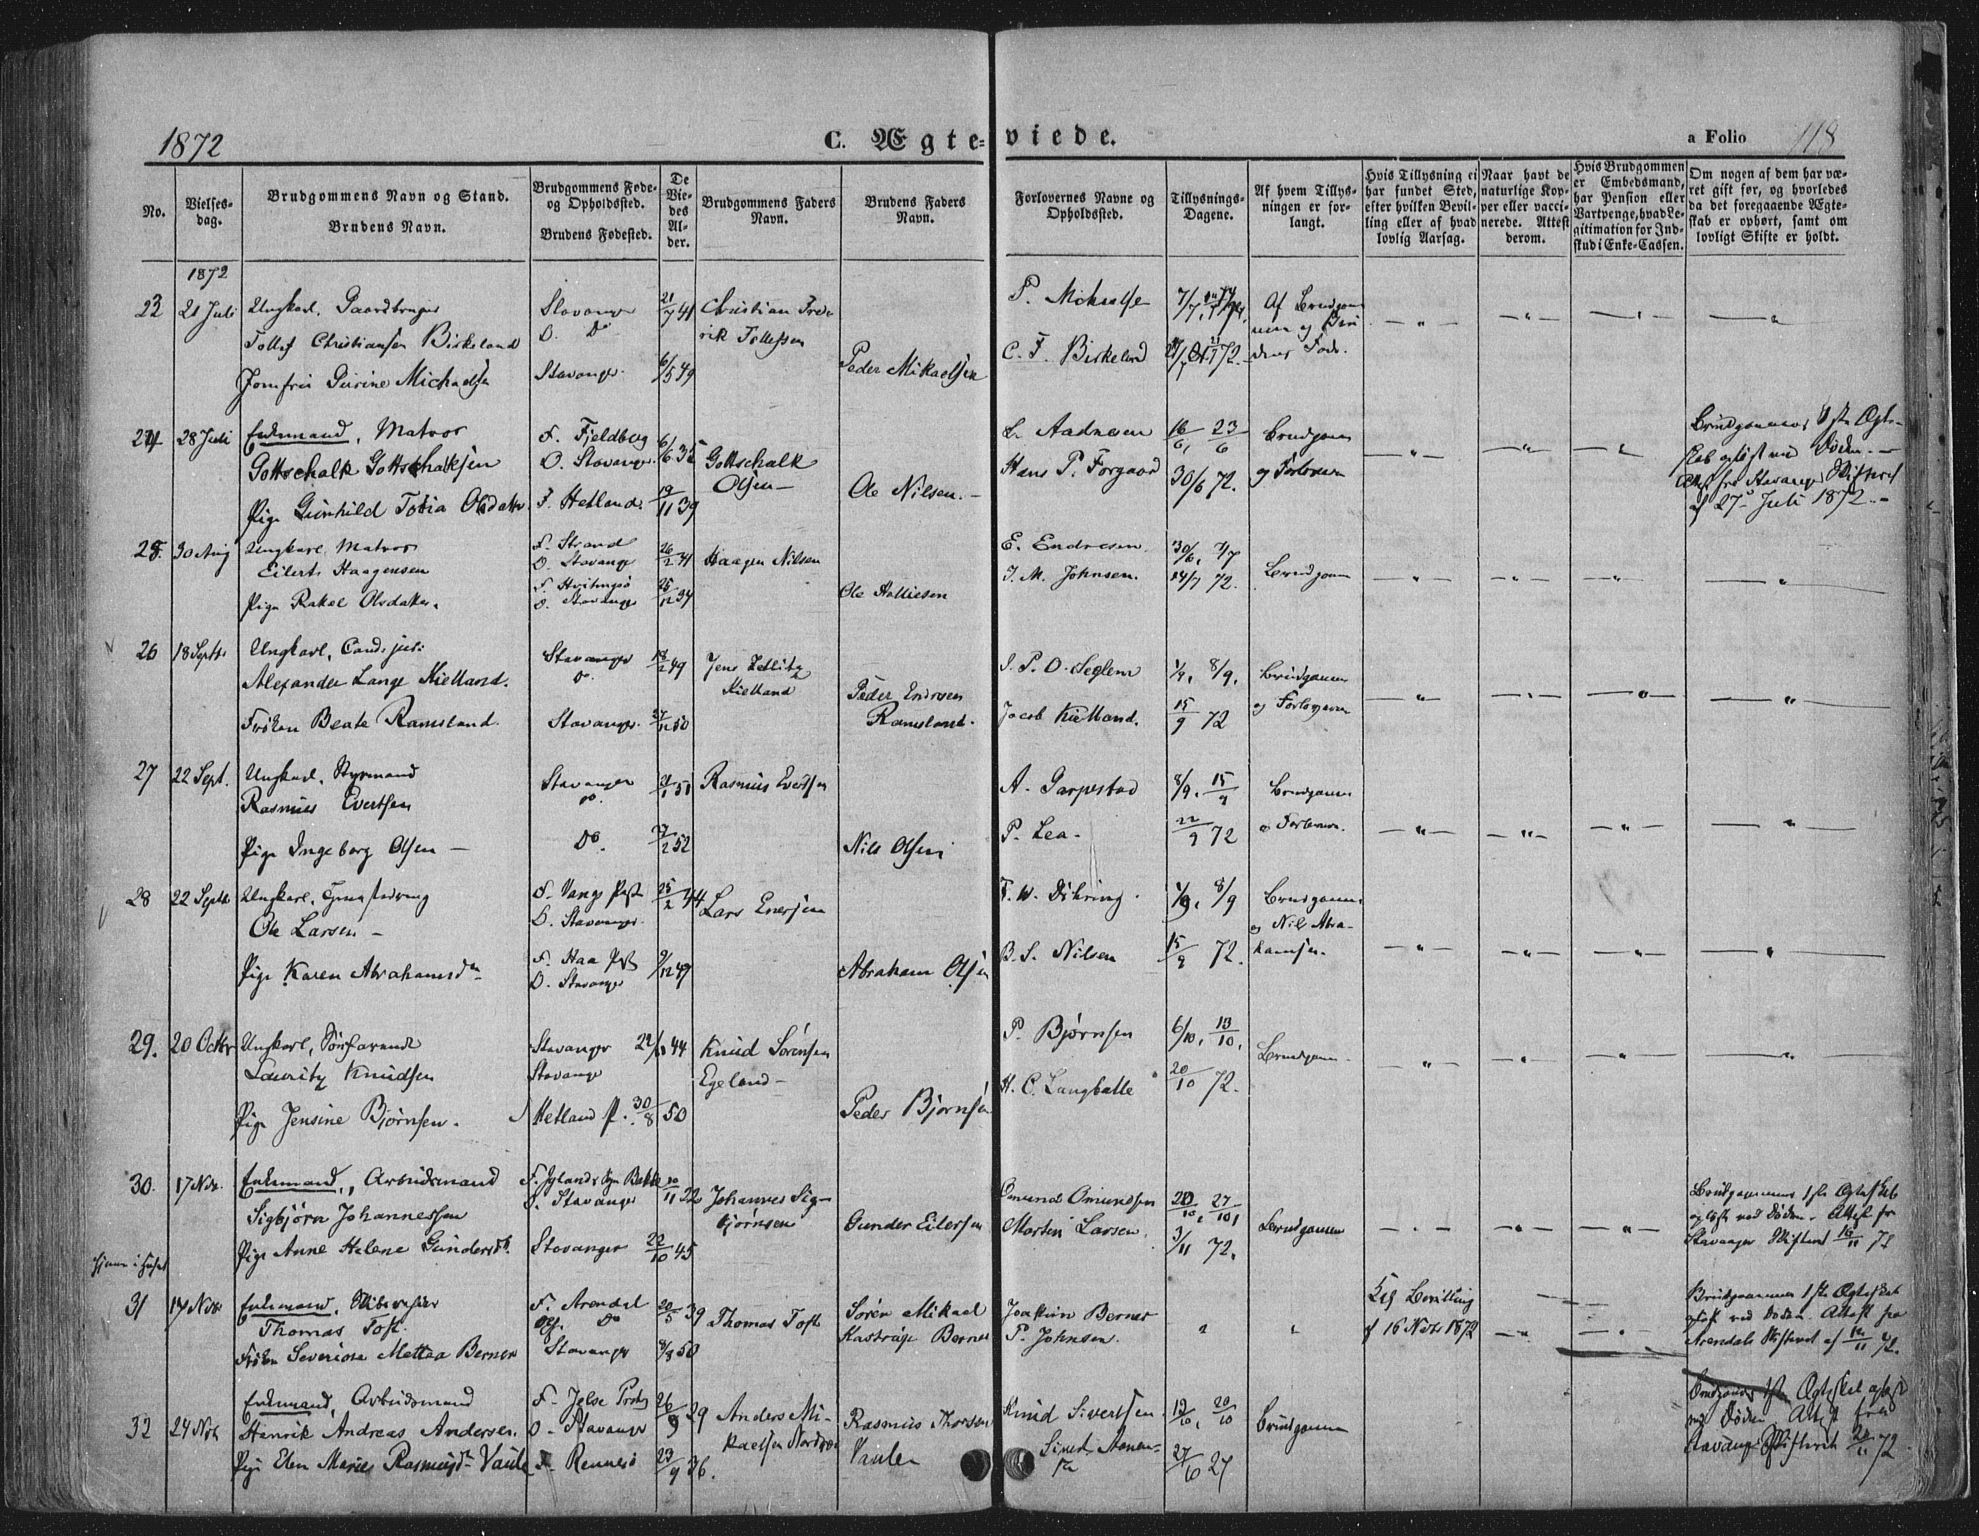 1872
C. Ægte-
viede.
a Folio 118
No.
Vielses-
dag.
Brudgommens Navn og Stand.
Brudens Navn.
Brudgommens Føde-
og Opholdssted.
Brudens Fødested.
De
Vie-
des
Al-
der.
Brudgommens Faders
Navn.
Brudens Faders
Navn.
Forlovernes Navne og
Opholdssted.
Tillysnings-
Dagene.
Af hvem Tillys-
ningen er for-
langt.
Hvis Tillysning ei
har fundet Sted,
efter hvilken Bevil-
ling eller af hvad
lovlig Aarsag.
Naar havt de
naturlige Kop-
per eller vacci-
nerede. Attest
derom.
Hvis Brudgommen
er Embedsmand,
har Pension eller
Vartpenge, hvad Le-
gitimation for Ind-
skud i Enke-Cassen.
Om nogen af dem har væ-
ret gift før, og hvorledes
da det foregaaende Ægte-
skab er ophørt, samt om
lovligt Skifte er holdt.
1872
23 21 Juli Ungkarl, Gaardbruger Stavanger 21/7 41 Christian Frede
rik Tollefsen
Tollef Christiansen Birkeland O. Do
Jomfru Gurine Michaelsen Stavanger 6/5 49 Peder Mikaelsen
P. Michaelsen
C. F. Birkeland
Af Brudgom
men og Bru
dens Fader.
24 28 Juli Enkemand, Matros F. Fjeldberg 6/6 35 Gottschalk
Olsen
Gottschalk Gottschalksen O. Stavanger
Pige Gunhild Tobia Olsdatter F. Hetland 19/11 39 Ole Nilsen
L. Aadnesen 16/6, 23/6 Brudgom
Hans P. Forgaard 30/6 72. og Forlover
Brudgommens 1ste Ægte-
skab opløst ved Døden.
Attest fra Stavanger Skifteret
af 27de Juli 1872.
25. 30 Aug Ungkarl Matros F. Strand 26/2 41 Haagen Nilsen
Eilert Haagensen O. Stavanger
Pige Rakel Olsdatter. F. Hvitingsø 25/12 34 Ole Halliesen
O. Stavanger
E. Endresen 30/6, 7/7
J. M. Johnsen. 14/7 72. Brudgom
26 18 Septbr Ungkarl, Cand. juris Stavanger 18/2 49 Jens Zetlitz
Kielland
Alexander Lange Kielland. Do.
Frøken Beate Ramsland. Stavanger 27/12 50 Peder Endresen
Ramsland.
S. P. O. Seglem 1/9, 8/9, Brudgommen
Jacob Kielland. 15/9 72 og Forloveren
27 22 Sept. Ungkarl, Styrmand Stavanger 21/1 51 Rasmus Evertsen
Rasmus Evertsen Do.
Pige Ingeborg Olsen Do. 27/2 52 Nils Olsen
A. Garpestad 8/9, 15/9 Brudgommen
P. Lea. 22/9 72 og Forloveren.
28 22 Septbr Ungkarl, F. Vangs Præst 25/2 44 Lars Enersen
Ole Larsen O. Stavanger
Pige Karen Abrahamsdtr F. Haa Præst 9/12 49 Abraham Olsen
O. Stavanger
F. W. Döhring. 1/9, 8/9 Brudgommen
og Nils Abra-
B. S. Nilsen 15/9 72. hamsen.
29. 20 Octbr Ungkarl, Søefarende Stavanger 22/1 44 Knud Sörensen
Egeland
Lauritz Knudsen Stavanger
Pige Jensine Björnsen. Hetland P. 30/8 50 Peder Björnsen
P. Björnsen 6/10, 13/10, Brudgom
H. C. Langballe 20/10 72.
30. 17 Nov. Enkemand, Arbeidsmand 22 Johannes Sig-
bjørnsen
Sigbjørn Johannessen O. Stavanger
Pige Anne Helene Gundersdtr. Stavanger 22/10 45 Gunder Eilersen
Omund Omundsen 20/10, 27/10, Brudgommen
Martin Larsen. 3/11 72.
Brudgommens 1ste Ægteskab
opløst ved Døden. Attest fra
Stavanger Skifteret 16/11 72
hjemme i Huset
31 17 Nov. Enkemand, Skibsreder F. Arendal 20/5 39 Thomas Toft
Thomas Toft. Do
Frøken Severine Mettea Berner Stavanger 8/8 50 Sören Mikael
Kastrup Berner
Joachim Berner
P. Johnsen.
Kgl Bevilling
af 16 Novbr 1872
Brudgommens 1ste Ægteskab
opløst ved Døden. Attest fra
Arendals Skifteret af 12/11 72.
32 24 Nov. Enkemand, Arbeidsmand F. Jelse Præst 26/9 29 Anders Mi-
kaelsen
Henrik Andreas Andersen. O. Stavanger
Pige Elen Marie Rasmusdtr Vaule F. Rennesø 23/9 36. Rasmus Thorsen
Vaule
Knud Sivertsen. 13/10, 20/10 Brudgommen
1ste Ægteskab opløst
ved Døden. Attest fra
Stavanger Skifteret 20/11 72